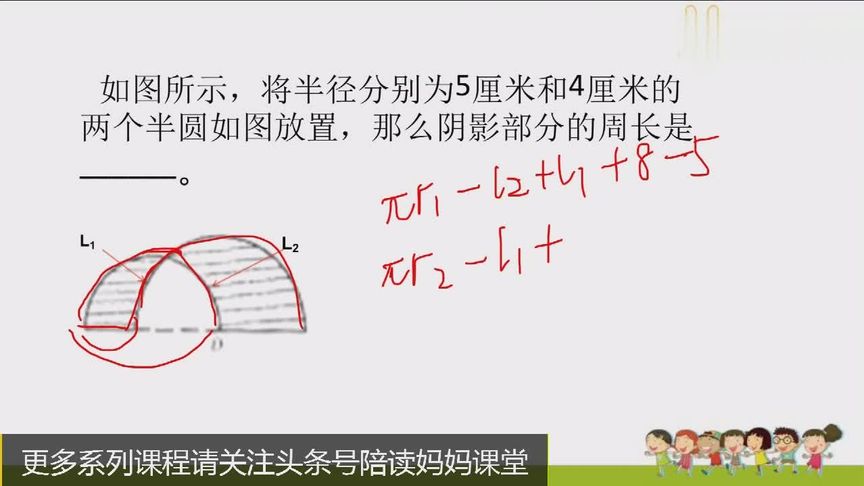 如图所示，将半径分别为5厘米和4厘米的
两个半圆如图放置，那么阴影部分的周长是
______。
πr₁-l₂+l₁+8-5
πr₂-l₁+
L₁
L₂
D
更多系列课程请关注头条号陪读妈妈课堂